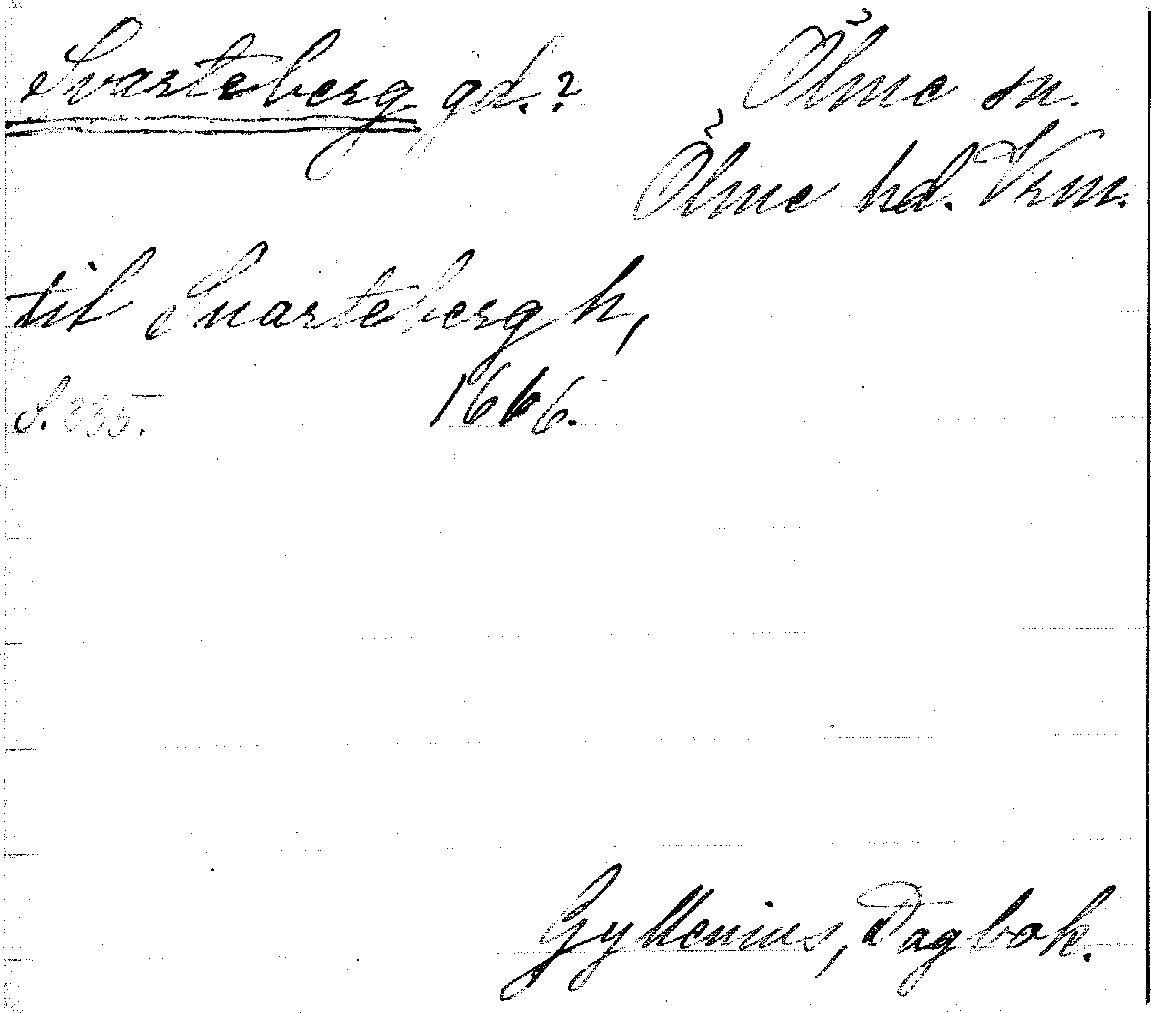 Svarteberg gd.? Ölme sn.
Ölme hd. Vrm.
til Suartebergh,
S. 335. 1666.
Gyllenius, Dagbok.